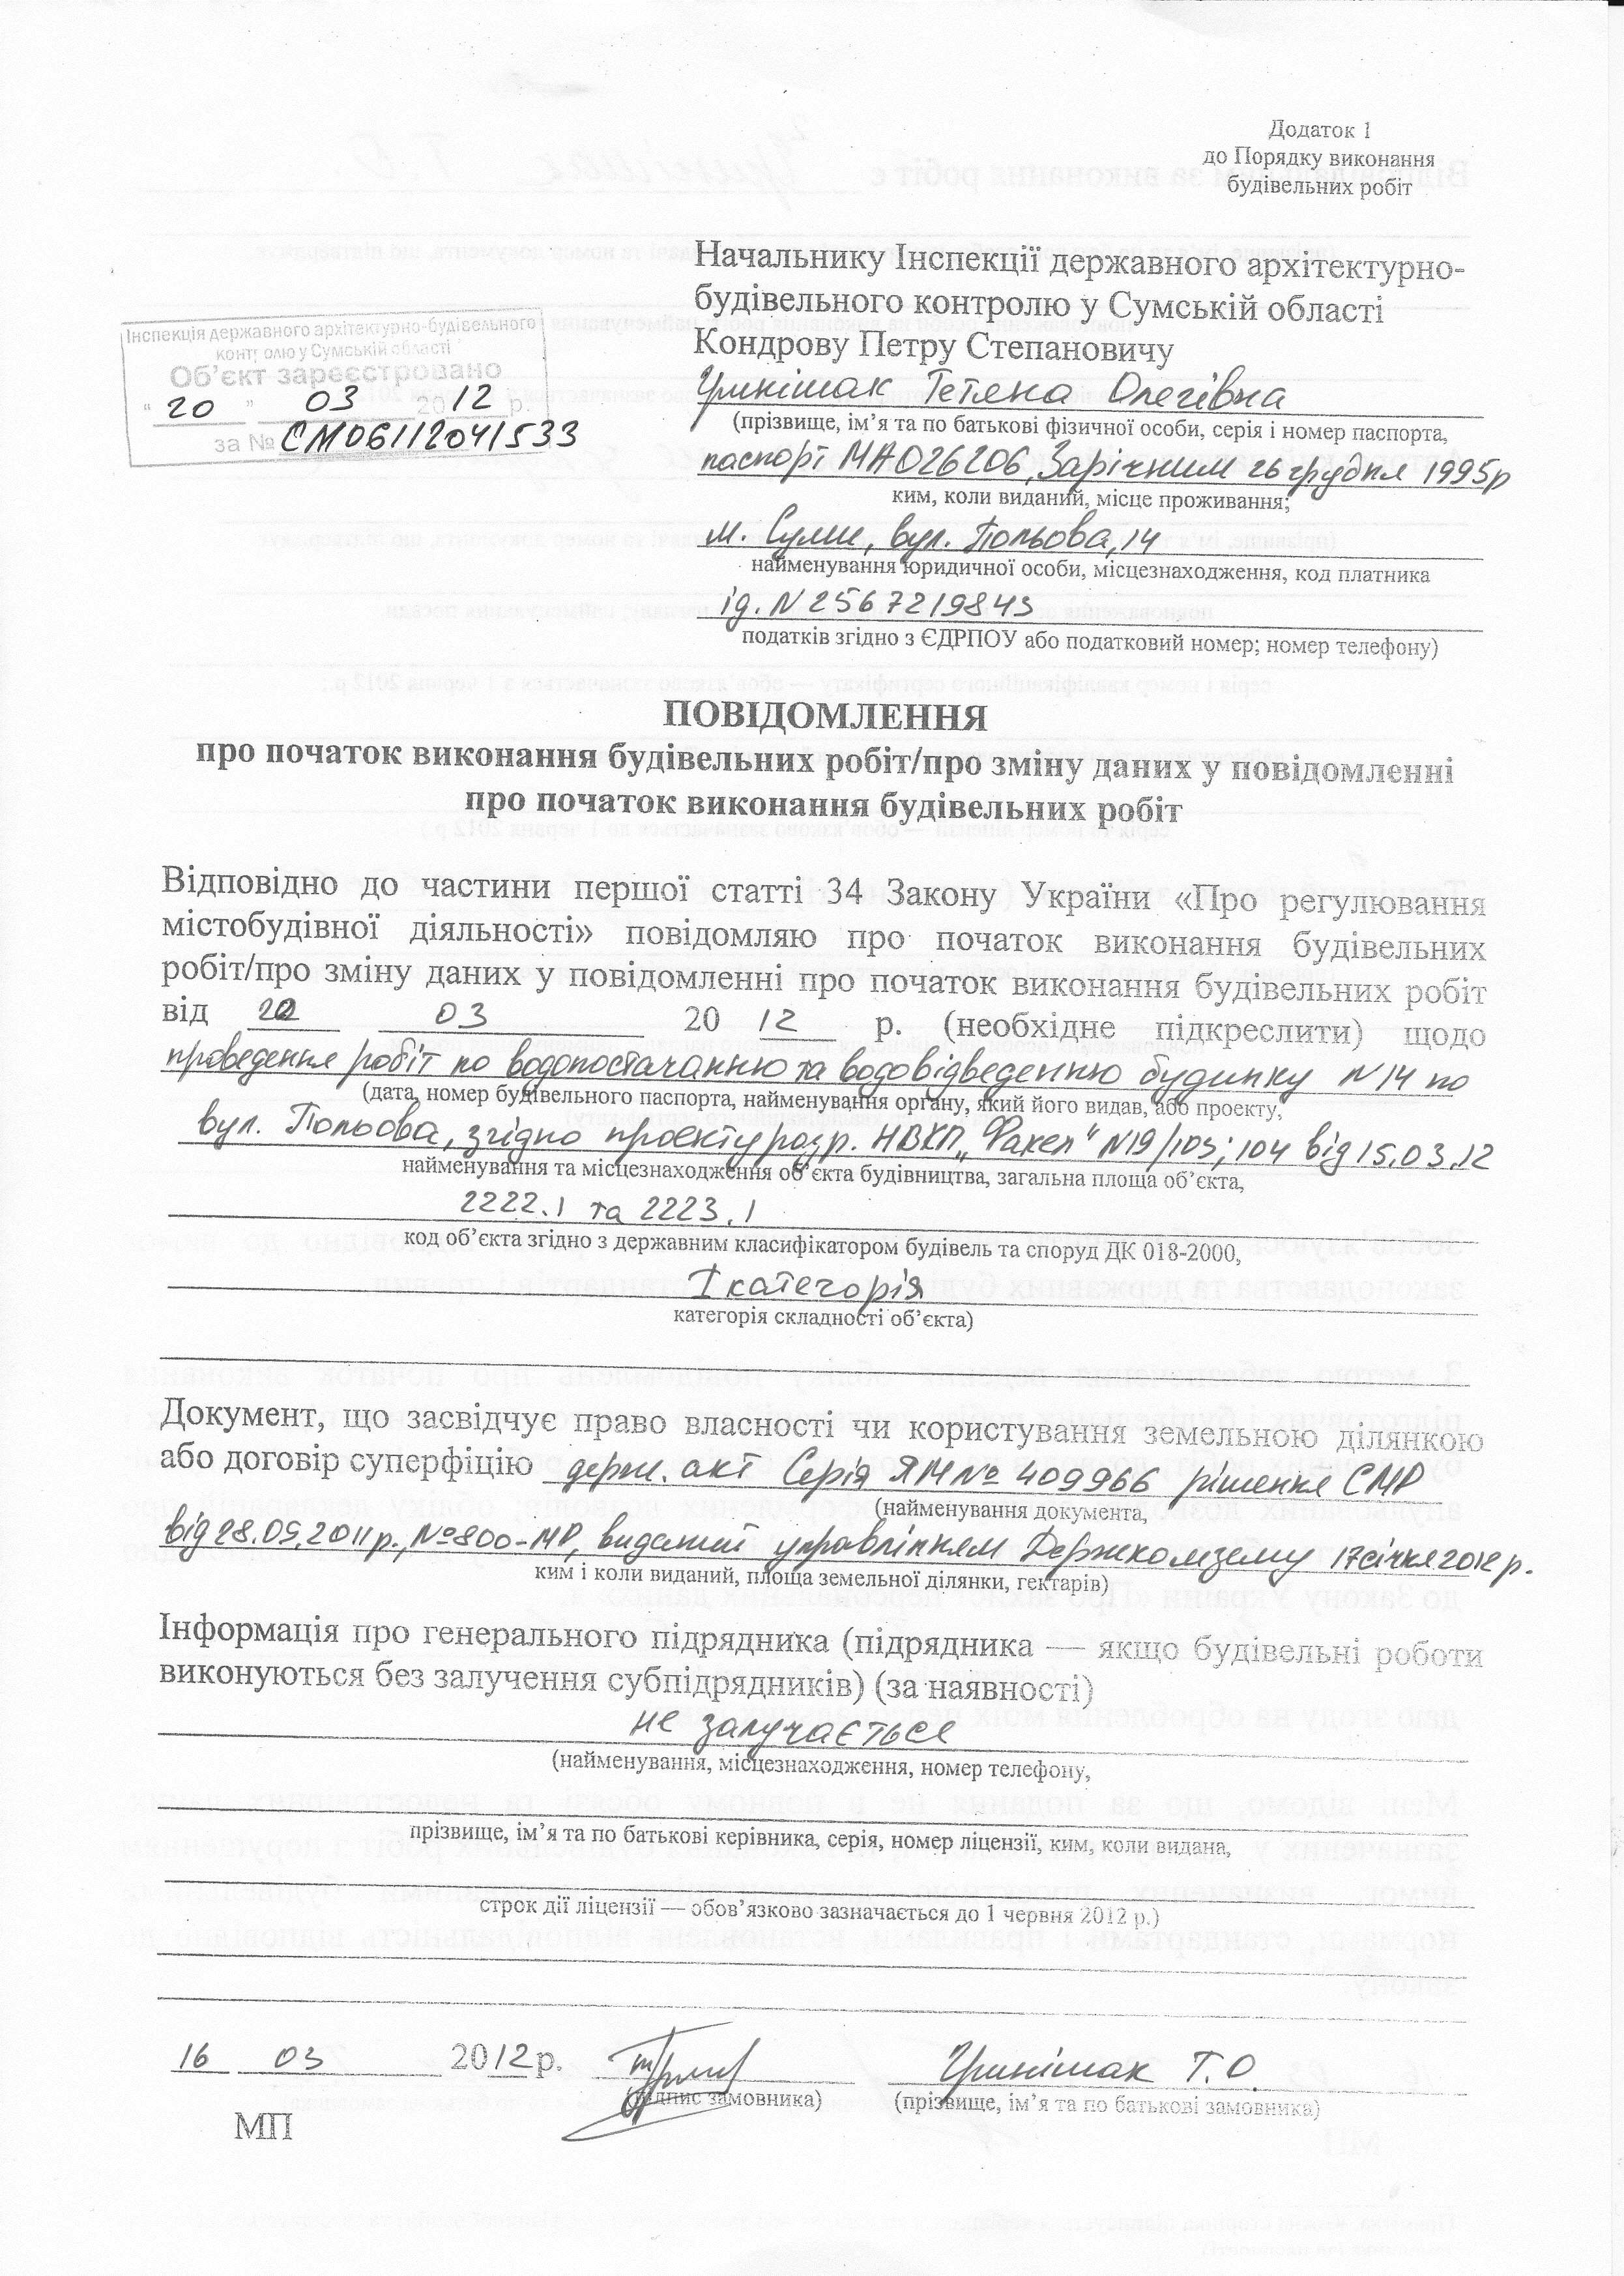 Додаток 1
до Порядку виконання
будівельних робіт
Начальнику Інспекції державного архітектурно-
будівельного контролю у Сумській області
Кондрову Петру Степановичу
Інспекція державного архітектурно-будівельного
контролю у Сумській області
Об'єкт зареєстровано
" 20 " 03 2012 р.
за № СМ06112041533
Тетяна Олегівна
(прізвище, ім'я та по батькові фізичної особи, серія і номер паспорта,
паспорт МА026206, Зарічним 26 грудня 1995р
ким, коли виданий, місце проживання;
м. Суми, вул. Польова, 14
найменування юридичної особи, місцезнаходження, код платника
ід. N 2567219843
податків згідно з ЄДРПОУ або податковий номер; номер телефону)
ПОВІДОМЛЕННЯ
про початок виконання будівельних робіт/про зміну даних у повідомленні
про початок виконання будівельних робіт
Відповідно до частини першої статті 34 Закону України «Про регулювання
містобудівної діяльності» повідомляю про початок виконання будівельних
робіт/про зміну даних у повідомленні про початок виконання будівельних робіт
від 20 03 20 12 р. (необхідне підкреслити) щодо
проведення робіт по водопостачанню та водовідведенню будинку N 14 по
(дата, номер будівельного паспорта, найменування органу, який його видав, або проекту,
вул. Польова, згідно проекту розр. НВКП „Факел" N19/103; 104 від 15.03.12
найменування та місцезнаходження об'єкта будівництва, загальна площа об'єкта,
2222.1 та 2223.1
код об'єкта згідно з державним класифікатором будівель та споруд ДК 018-2000,
I категорія
категорія складності об'єкта)
Документ, що засвідчує право власності чи користування земельною ділянкою
або договір суперфіцію держ. акт Серія ЯМ № 409966 рішення СМР
(найменування документа,
від 28.09.2011р., №800-МР, виданий управлінням Держкомзему 17січня2012р.
ким і коли виданий, площа земельної ділянки, гектарів)
Інформація про генерального підрядника (підрядника — якщо будівельні роботи
виконуються без залучення субпідрядників) (за наявності)
не залучається
(найменування, місцезнаходження, номер телефону,
прізвище, ім'я та по батькові керівника, серія, номер ліцензії, ким, коли видана,
строк дії ліцензії — обов'язково зазначається до 1 червня 2012 р.)
16 03 2012р. Т.О.
(підпис замовника) (прізвище, ім'я та по батькові замовника)
МП